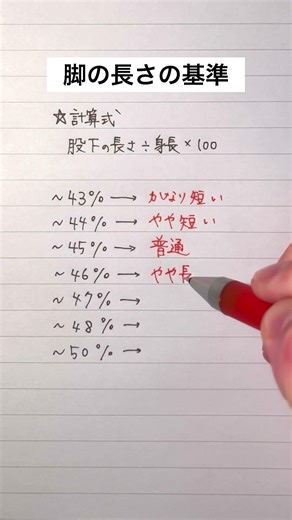 脚の長さの基準
☆計算式
股下の長さ÷身長×100
~43%→かなり短い
~44%→やや短い
~45%→普通
~46%→やや長
~47%→
~48%→
~50%→